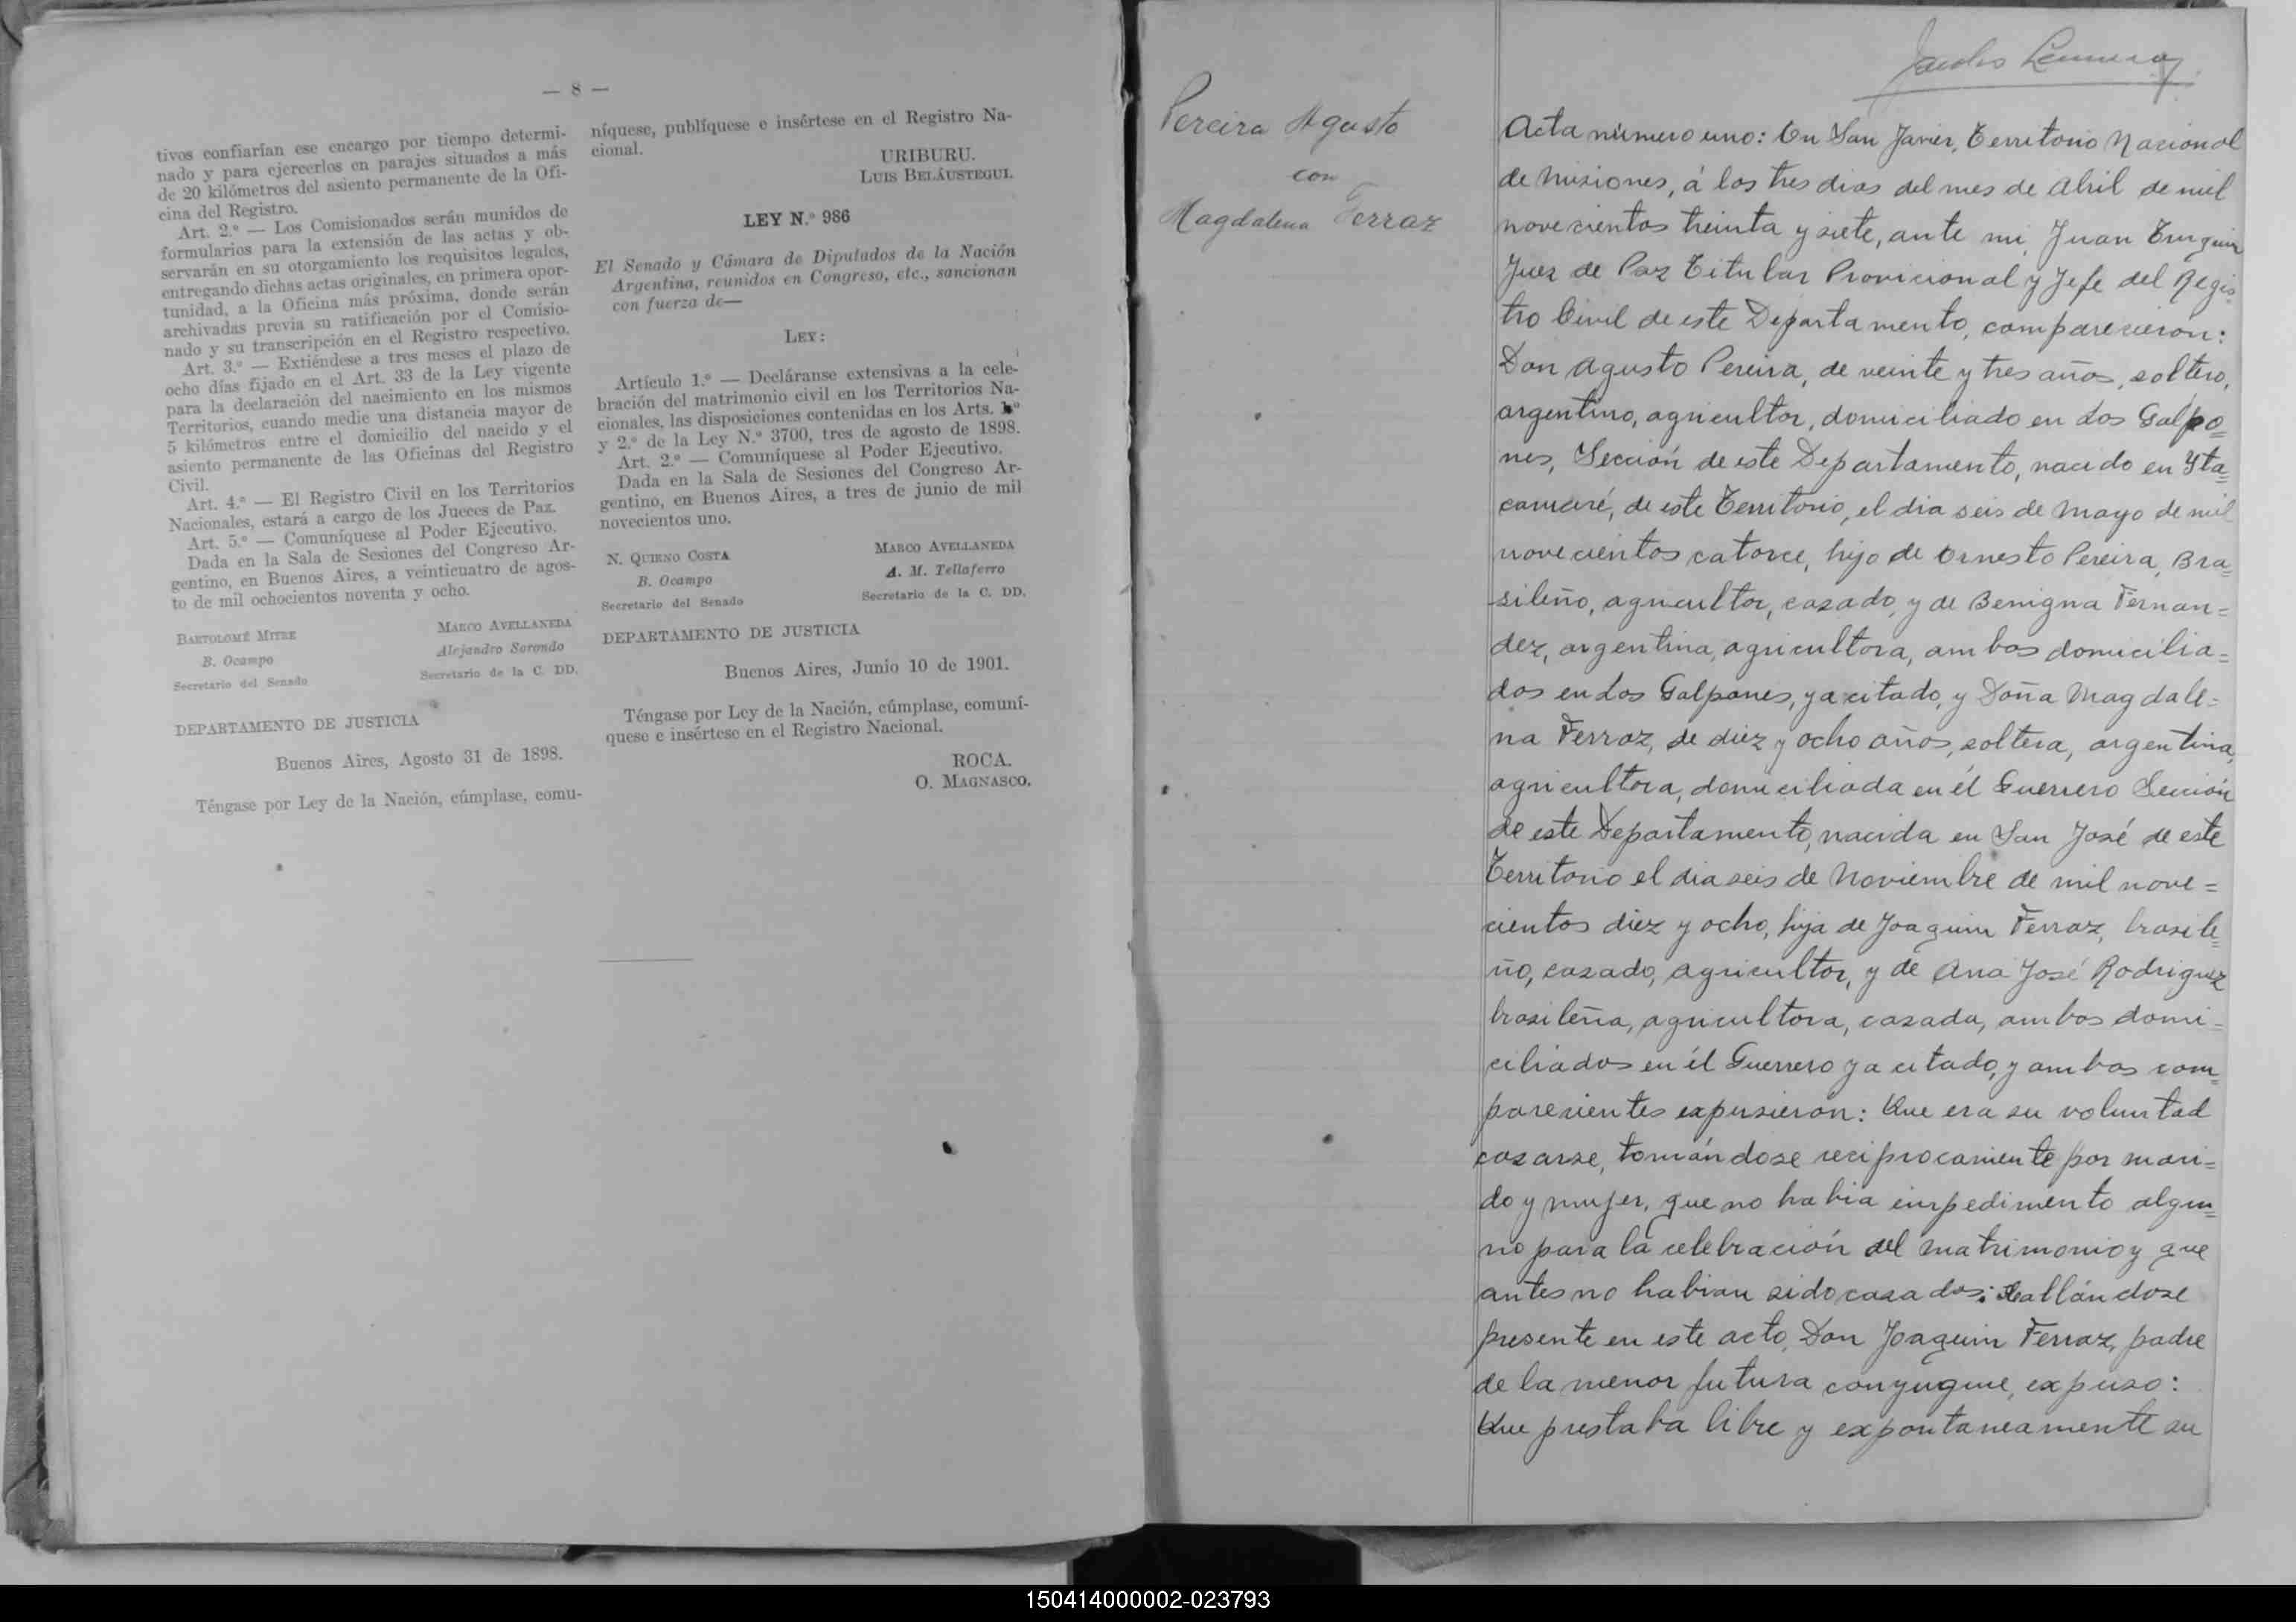 — 8 —
tivos confiarían ese encargo por tiempo determi-
nado y para ejercerlos en parajes situados a más
de 20 kilómetros del asiento permanente de la Ofi-
cina del Registro.
Art. 2.º — Los Comisionados serán munidos de
formularios para la extensión de las actas y ob-
servarán en su otorgamiento los requisitos legales,
entregando dichas actas originales, en primera opor-
tunidad, a la Oficina más próxima, donde serán
archivadas previa su ratificación por el Comisio-
nado y su transcripción en el Registro respectivo.
Art. 3.º — Extiéndese a tres meses el plazo de
ocho días fijado en el Art. 33 de la Ley vigente
para la declaración del nacimiento en los mismos
Territorios, cuando medie una distancia mayor de
5 kilómetros entre el domicilio del nacido y el
asiento permanente de las Oficinas del Registro
Civil.
Art. 4.º — El Registro Civil en los Territorios
Nacionales, estará a cargo de los Jueces de Paz.
Art. 5.º — Comuníquese al Poder Ejecutivo.
Dada en la Sala de Sesiones del Congreso Ar-
gentino, en Buenos Aires, a veinticuatro de agos-
to de mil ochocientos noventa y ocho.
BARTOLOMÉ MITRE MARCO AVELLANEDA
B. Ocampo Alejandro Sorondo
Secretario del Senado Secretario de la C. DD.
DEPARTAMENTO DE JUSTICIA
Buenos Aires, Agosto 31 de 1898.
Téngase por Ley de la Nación, cúmplase, comu-
níquese, publíquese e insértese en el Registro Na-
cional.
URIBURU.
LUIS BELÁUSTEGUI.
LEY N.º 986
El Senado y Cámara de Diputados de la Nación
Argentina, reunidos en Congreso, etc., sancionan
con fuerza de—
LEY:
Artículo 1.º — Decláranse extensivas a la cele-
bración del matrimonio civil en los Territorios Na-
cionales, las disposiciones contenidas en los Arts. 1º
y 2.º de la Ley N.º 3700, tres de agosto de 1898.
Art. 2.º — Comuníquese al Poder Ejecutivo.
Dada en la Sala de Sesiones del Congreso Ar-
gentino, en Buenos Aires, a tres de junio de mil
novecientos uno.
N. QUIRNO COSTA MARCO AVELLANEDA
B. Ocampo A. M. Tallaferro
Secretario del Senado Secretario de la C. DD.
DEPARTAMENTO DE JUSTICIA
Buenos Aires, Junio 10 de 1901.
Téngase por Ley de la Nación, cúmplase, comuní-
quese e insértese en el Registro Nacional.
ROCA.
O. MAGNASCO.
Pereira Agusto
con
Magdalena Ferraz
Acta número uno: En San Javier, Territorio Nacional
de Misiones, á los tres dias del mes de Abril de mil
novecientos treinta y siete, ante mi Juan
Juez de Paz Titular Provicional y Jefe del Regis-
tro Civil de este Departamento, comparecieron:
Don Agusto Pereira, de veinte y tres años, soltero,
argentino, agricultor, domiciliado en Los Galpo=
nes, Sección de este Departamento, nacido en Yta=
camaré, de este Territorio, el dia seis de Mayo de mil
novecientos catorce, hijo de Ernesto Pereira, Bra=
sileño, agricultor, casado, y de Benigna Fernan=
dez, argentina, agricultora, ambos domicilia=
dos en Los Galpones, ya citado, y Doña Magdale=
na Ferraz, de diez y ocho años, soltera, argentina,
agricultora, domiciliada en él Guerrero Sección
de este Departamento, nacida en San José de este
Territorio el dia seis de Noviembre de mil nove=
cientos diez y ocho, hija de Joaquin Ferraz, brasile=
ño, casado, agricultor, y de Ana José Rodriguez
brasileña, agricultora, casada, ambos domi=
ciliados en él Guerrero ya citado, y ambos com=
parecientes expusieron: Que era su voluntad
casarse, tomándose reciprocamente por mari=
do y mujer, que no habia impedimento algu=
no para la celebración del matrimonio y que
antes no habian sido casados: Hallándose
presente en este acto, Don Joaquin Ferraz, padre
de la menor futura conyugue, expuso:
Que prestaba libre y expontaneamente su
150414000002-023793